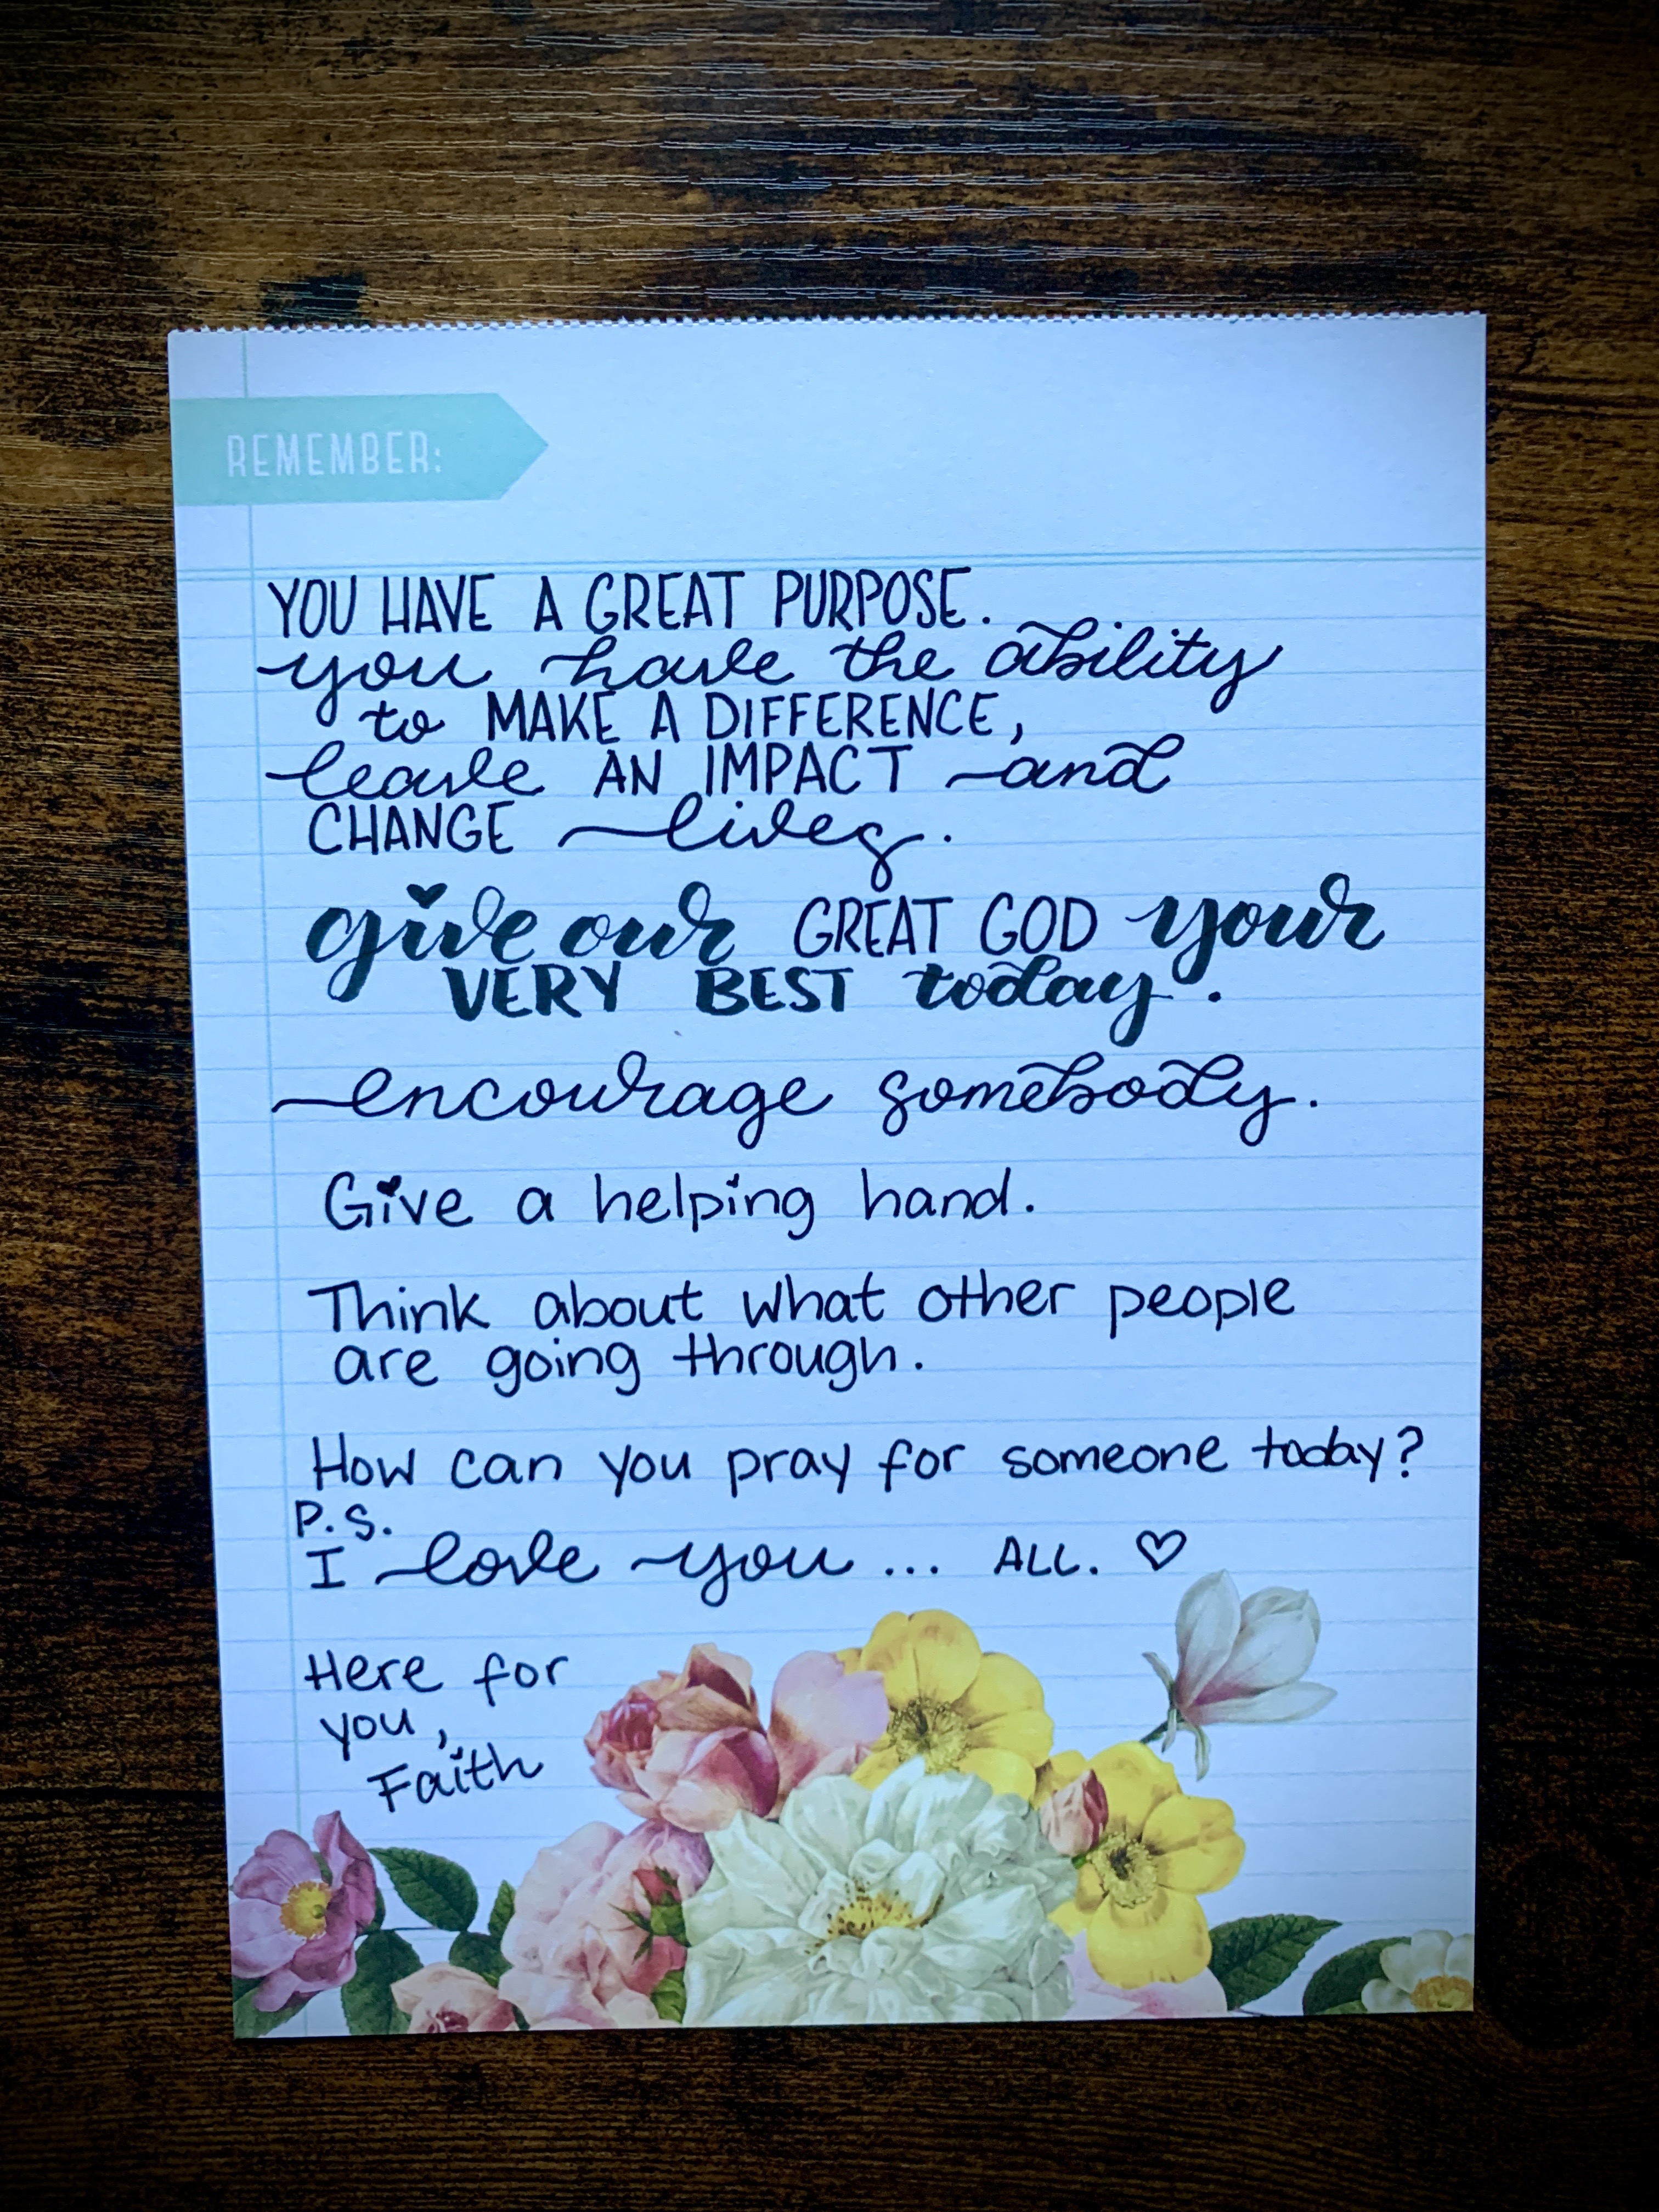 REMEMBER:
YOU HAVE A GREAT PURPOSE.
you have the ability
to MAKE A DIFFERENCE,
leave AN IMPACT and
CHANGE lives.
give our GREAT GOD your
VERY BEST today.
encourage somebody.
Give a helping hand.
Think about what other people
are going through.
How can you pray for someone today?
P.S.
I love you... ALL. ♡
Here for
you,
Faith